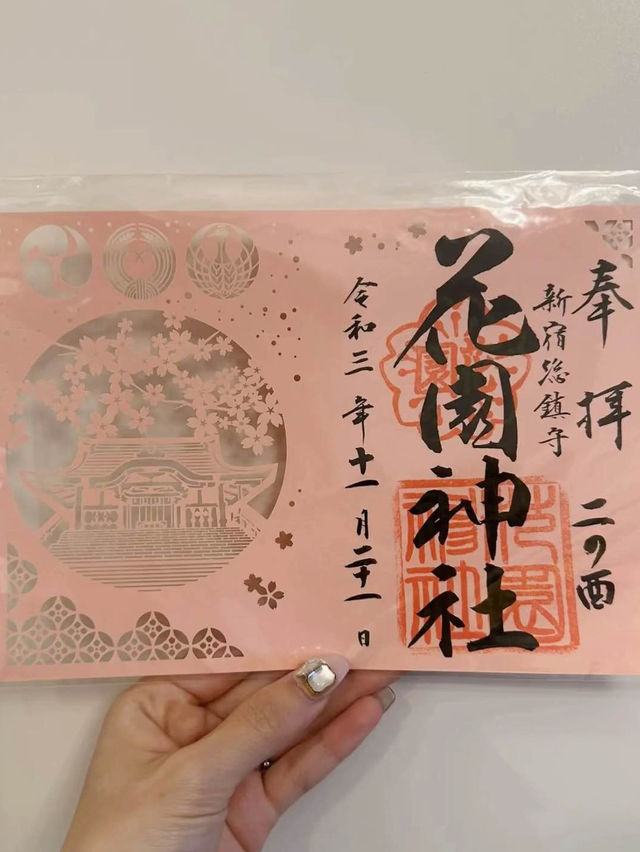 奉拝 二の酉
新宿総鎮守
花園神社
花園神社
令和三年十一月二十一日